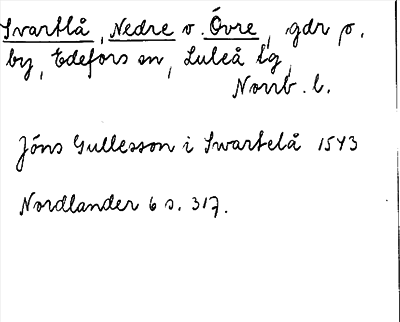 Svartlå, Nedre o. Övre, gdr o.
by, Edefors sn, Luleå tg,
Norrb. l.
Jöns Gullesson i Swartelå 1543
Nordlander 6 s. 317.